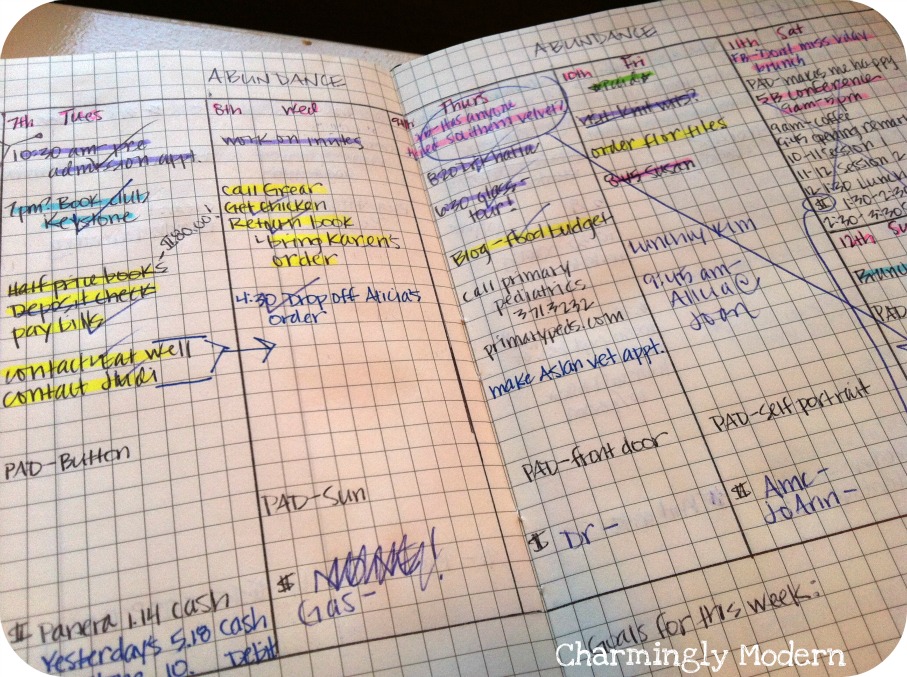 ABUNDANCE
7th Tues
10:30 am pre
admission appt.
7pm Book club
Keystone
Half price books - $80.60!
Deposit checks
pay bills
contact Eat well
contact
PAD-Button
$ Panera 1.14 cash
Yesterday's 5.18 cash
10. Debit
8th Wed
work on minutes
Call Greear
Get chicken
Return book
bring Karen's
order
4:30 Drop off Alicia's
order
PAD-Sun
$
Gas-
ABUNDANCE
9th Thurs
FB-Has anyone
tried southern velvet?
6:30 Glass
tour!
Blog-food budget
call primary
pediatrics
371 3232
primarypeds.com
make Asian vet appt.
PAD-front door
$ Dr-
10th Fri
order flor tiles
Lunch w/ Kim
9:45 am-
Alicia @
Joan
PAD-self portrait
$ Amc-
JoAnn-
11th Sat
FB-Don't miss vday
brunch
PAD-makes me happy
SB Conference
9am-5pm
9am-coffee
9:45 opening remar
10-11 session 1
11-12 session 2
12-1:30 Lunch
$ 1:30-2:30
2:30-3:30
12th Su
Brunc
PAD
Goals for this week:
Charmingly Modern